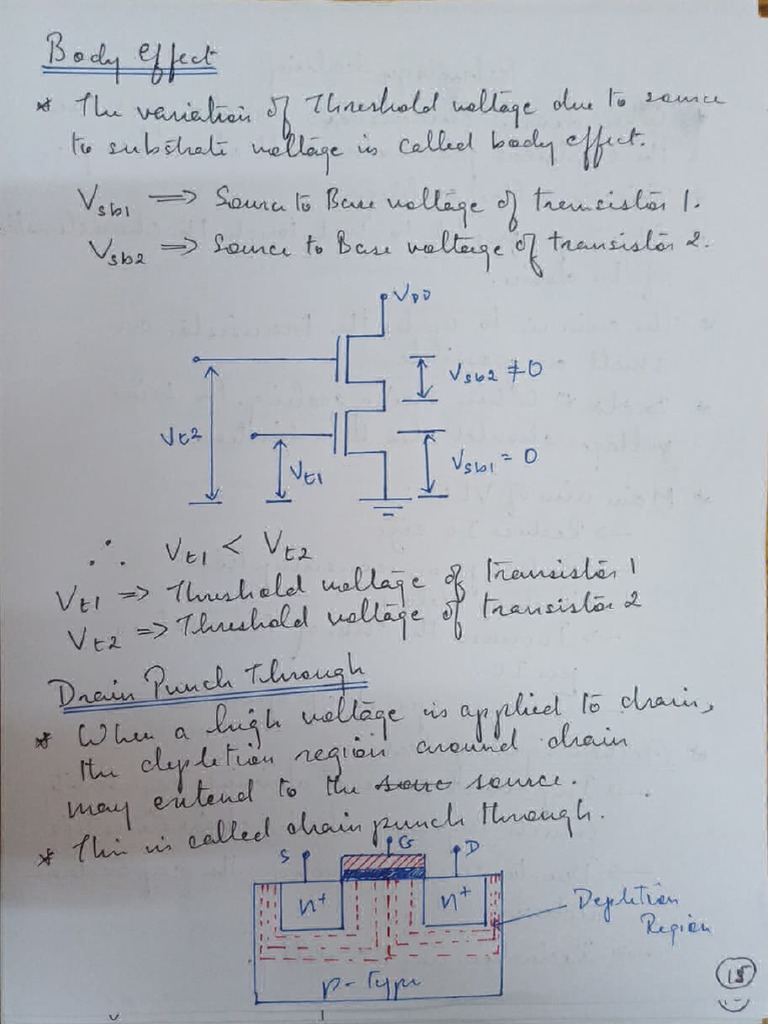 Body Effect
* The variation of Threshold voltage due to source
to substrate voltage is called body effect.
Vsb1 => Source to Base voltage of transistor 1.
Vsb2 => Source to Base voltage of transistor 2.
VDD
Vsb2 ≠ 0
Vt2
Vt1
Vsb1 = 0
∴ Vt1 < Vt2
Vt1 => Threshold voltage of Transistor 1
Vt2 => Threshold voltage of transistor 2
Drain Punch Through
* When a high voltage is applied to drain,
the depletion region around drain
may extend to the source.
* This is called drain punch through.
S G D
n+ n+
Depletion
Region
p-Type
15